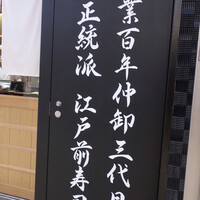 業百年仲卸三代
正統派 江戸前寿